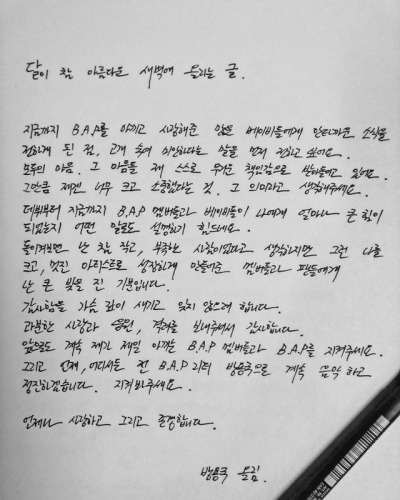 달이 참 아름다운 새벽에 올리는 글.
지금까지 B.A.P를 아끼고 사랑해준 많은 베이비들에게 안타까운 소식을
전하게 된 점, 고개 숙여 미안하다는 말을 먼저 전하고 싶어요.
모두의 마음. 그 마음들을 제 스스로 무거운 책임감으로 받아들이고 있어요.
그만큼 제겐 너무 크고 소중했다는 것. 그 의미라고 생각해주세요.
데뷔부터 지금까지 B.A.P 멤버들과 베이비들이 나에게 얼마나 큰 힘이
되었는지 어떤 말로도 설명하기 힘드네요.
돌이켜보면 난 참 작고, 부족한 사람이었다고 생각하지만 그런 나를
크고, 멋진 아티스트로 성장하게 만들어준 멤버들과 팬들에게
난 큰 빚을 진 기분입니다.
감사함을 가슴 깊이 새기고 잊지 않으려 합니다.
과분한 사랑과 응원, 격려를 보내주셔서 감사합니다.
앞으로도 계속 제가 제일 아끼는 B.A.P 멤버들과 B.A.P를 지켜주세요.
그리고 언제, 어디서든 전 B.A.P 리더 방용국으로 계속 음악하고
정진하겠습니다. 지켜봐주세요.
언제나 사랑하고 그리고 존경합니다.
방용국 올림.